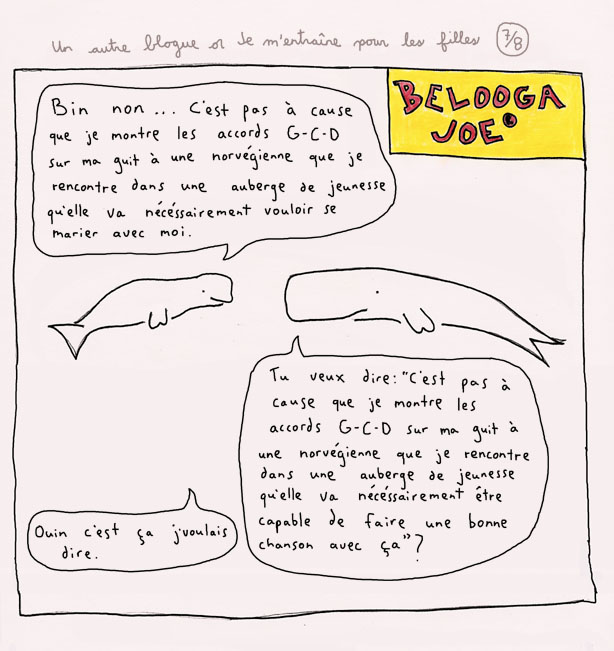 Un autre blogue où Je m'entraîne pour les filles 7/8
BELOOGA
JOE
Bin non... C'est pas à cause
que je montre les accords G-C-D
sur ma guit à une norvégienne que je
rencontre dans une auberge de jeunesse
qu'elle va nécéssairement vouloir se
marier avec moi.
Tu veux dire: "C'est pas à
cause que je montre les
accords G-C-D sur ma guit à
une norvégienne que je rencontre
dans une auberge de jeunesse
qu'elle va nécéssairement être
capable de faire une bonne
chanson avec ça"?
Ouin c'est ça j'voulais
dire.